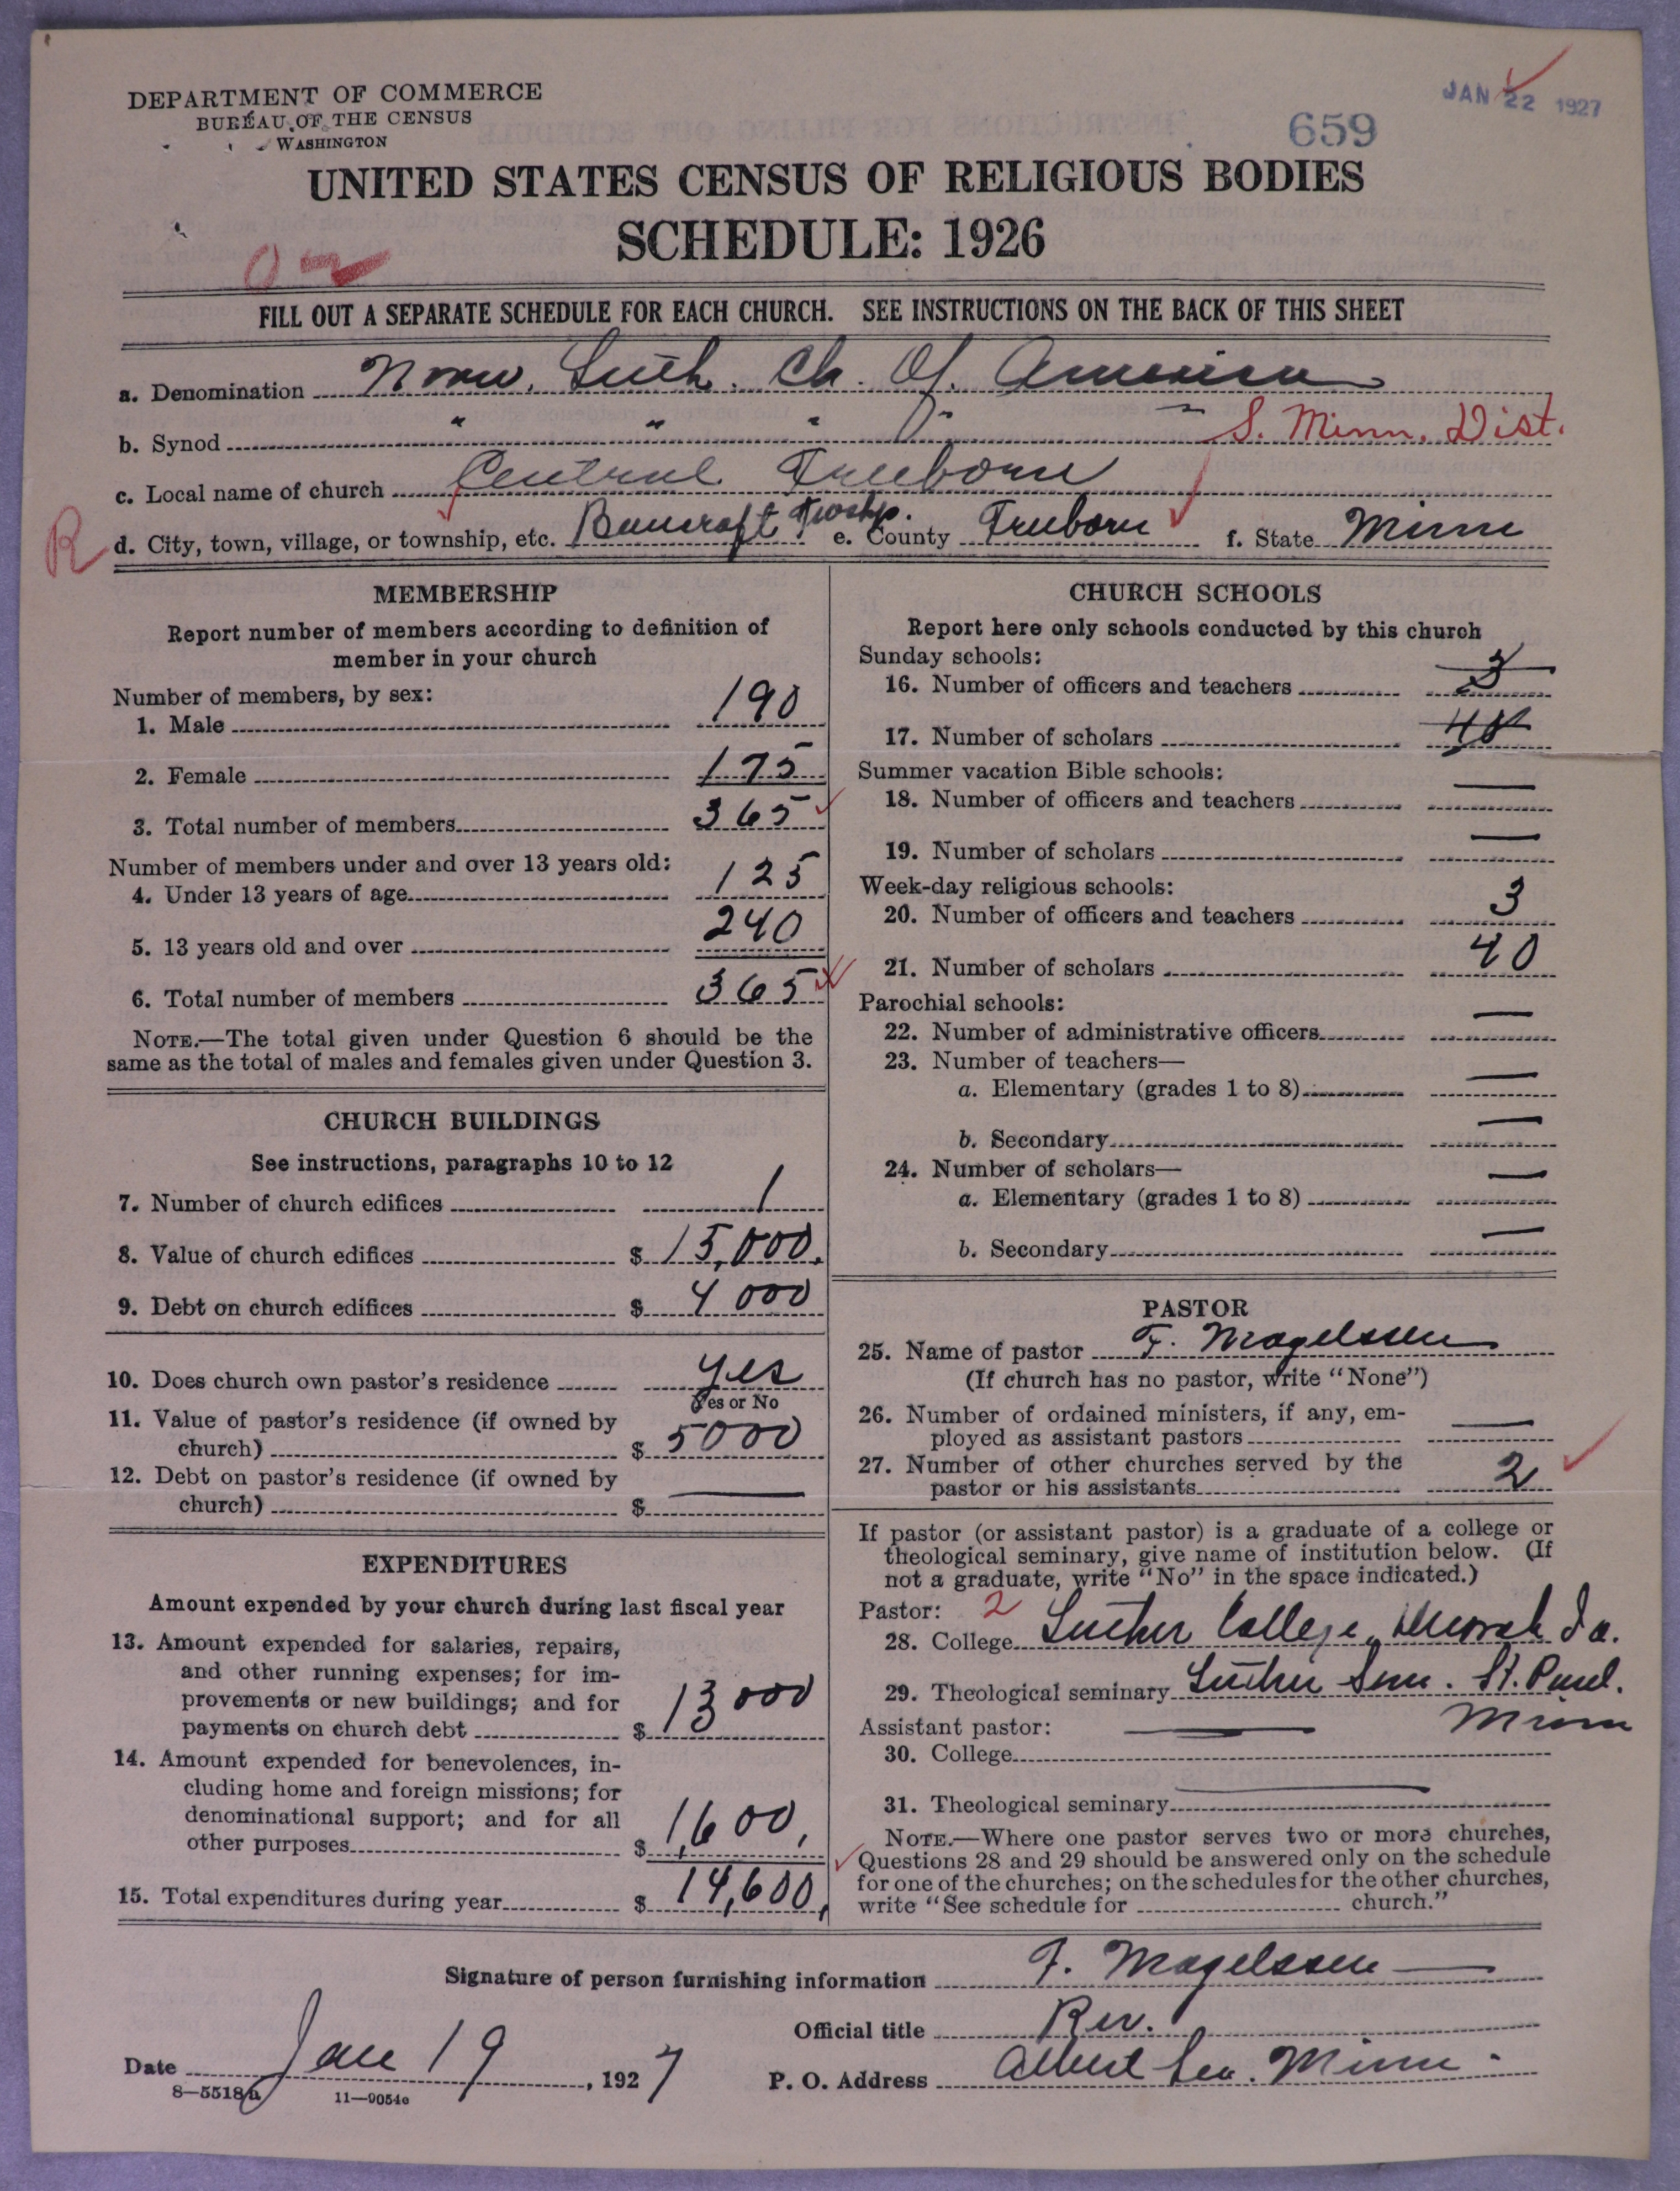 DEPARTMENT OF COMMERCE
BUREAU OF THE CENSUS
WASHINGTON
JAN 22 1927
659
UNITED STATES CENSUS OF RELIGIOUS BODIES
SCHEDULE: 1926
FILL OUT A SEPARATE SCHEDULE FOR EACH CHURCH. SEE INSTRUCTIONS ON THE BACK OF THIS SHEET
a. Denomination Norw. Luth. Ch. Of. America
b. Synod " " " " " S. Minn. Dist.
c. Local name of church Central Freeborn
R d. City, town, village, or township, etc. Bancroft Twshp. e. County Freeborn f. State Minn
MEMBERSHIP
Report number of members according to definition of
member in your church
Number of members, by sex:
1. Male 190
2. Female 175
3. Total number of members 365
Number of members under and over 13 years old:
4. Under 13 years of age 125
5. 13 years old and over 240
6. Total number of members 365
NOTE.—The total given under Question 6 should be the
same as the total of males and females given under Question 3.
CHURCH BUILDINGS
See instructions, paragraphs 10 to 12
7. Number of church edifices 1
8. Value of church edifices $ 15,000.
9. Debt on church edifices $ 4000
10. Does church own pastor's residence yes
Yes or No
11. Value of pastor's residence (if owned by
church) $ 5000
12. Debt on pastor's residence (if owned by
church) $ —
EXPENDITURES
Amount expended by your church during last fiscal year
13. Amount expended for salaries, repairs,
and other running expenses; for im-
provements or new buildings; and for
payments on church debt $ 13000
14. Amount expended for benevolences, in-
cluding home and foreign missions; for
denominational support; and for all
other purposes $ 1,600,
15. Total expenditures during year $ 14,600,
CHURCH SCHOOLS
Report here only schools conducted by this church
Sunday schools:
16. Number of officers and teachers 3
17. Number of scholars 40
Summer vacation Bible schools:
18. Number of officers and teachers —
19. Number of scholars —
Week-day religious schools:
20. Number of officers and teachers 3
21. Number of scholars 40
Parochial schools:
22. Number of administrative officers —
23. Number of teachers—
a. Elementary (grades 1 to 8) —
b. Secondary —
24. Number of scholars—
a. Elementary (grades 1 to 8) —
b. Secondary —
PASTOR
25. Name of pastor F. Magelssen
(If church has no pastor, write "None")
26. Number of ordained ministers, if any, em-
ployed as assistant pastors —
27. Number of other churches served by the
pastor or his assistants 2
If pastor (or assistant pastor) is a graduate of a college or
theological seminary, give name of institution below. (If
not a graduate, write "No" in the space indicated.)
Pastor: 2
28. College Luther College, Decorah Ia.
29. Theological seminary Luther Sem. St. Paul.
Minn
Assistant pastor: —
30. College
31. Theological seminary —
NOTE.—Where one pastor serves two or more churches,
Questions 28 and 29 should be answered only on the schedule
for one of the churches; on the schedules for the other churches,
write "See schedule for church."
Signature of person furnishing information F. Magelssen
Official title Rev.
Date Jan 19, 1927
P. O. Address Albert Lea. Minn.
8—5518a 11—9054c